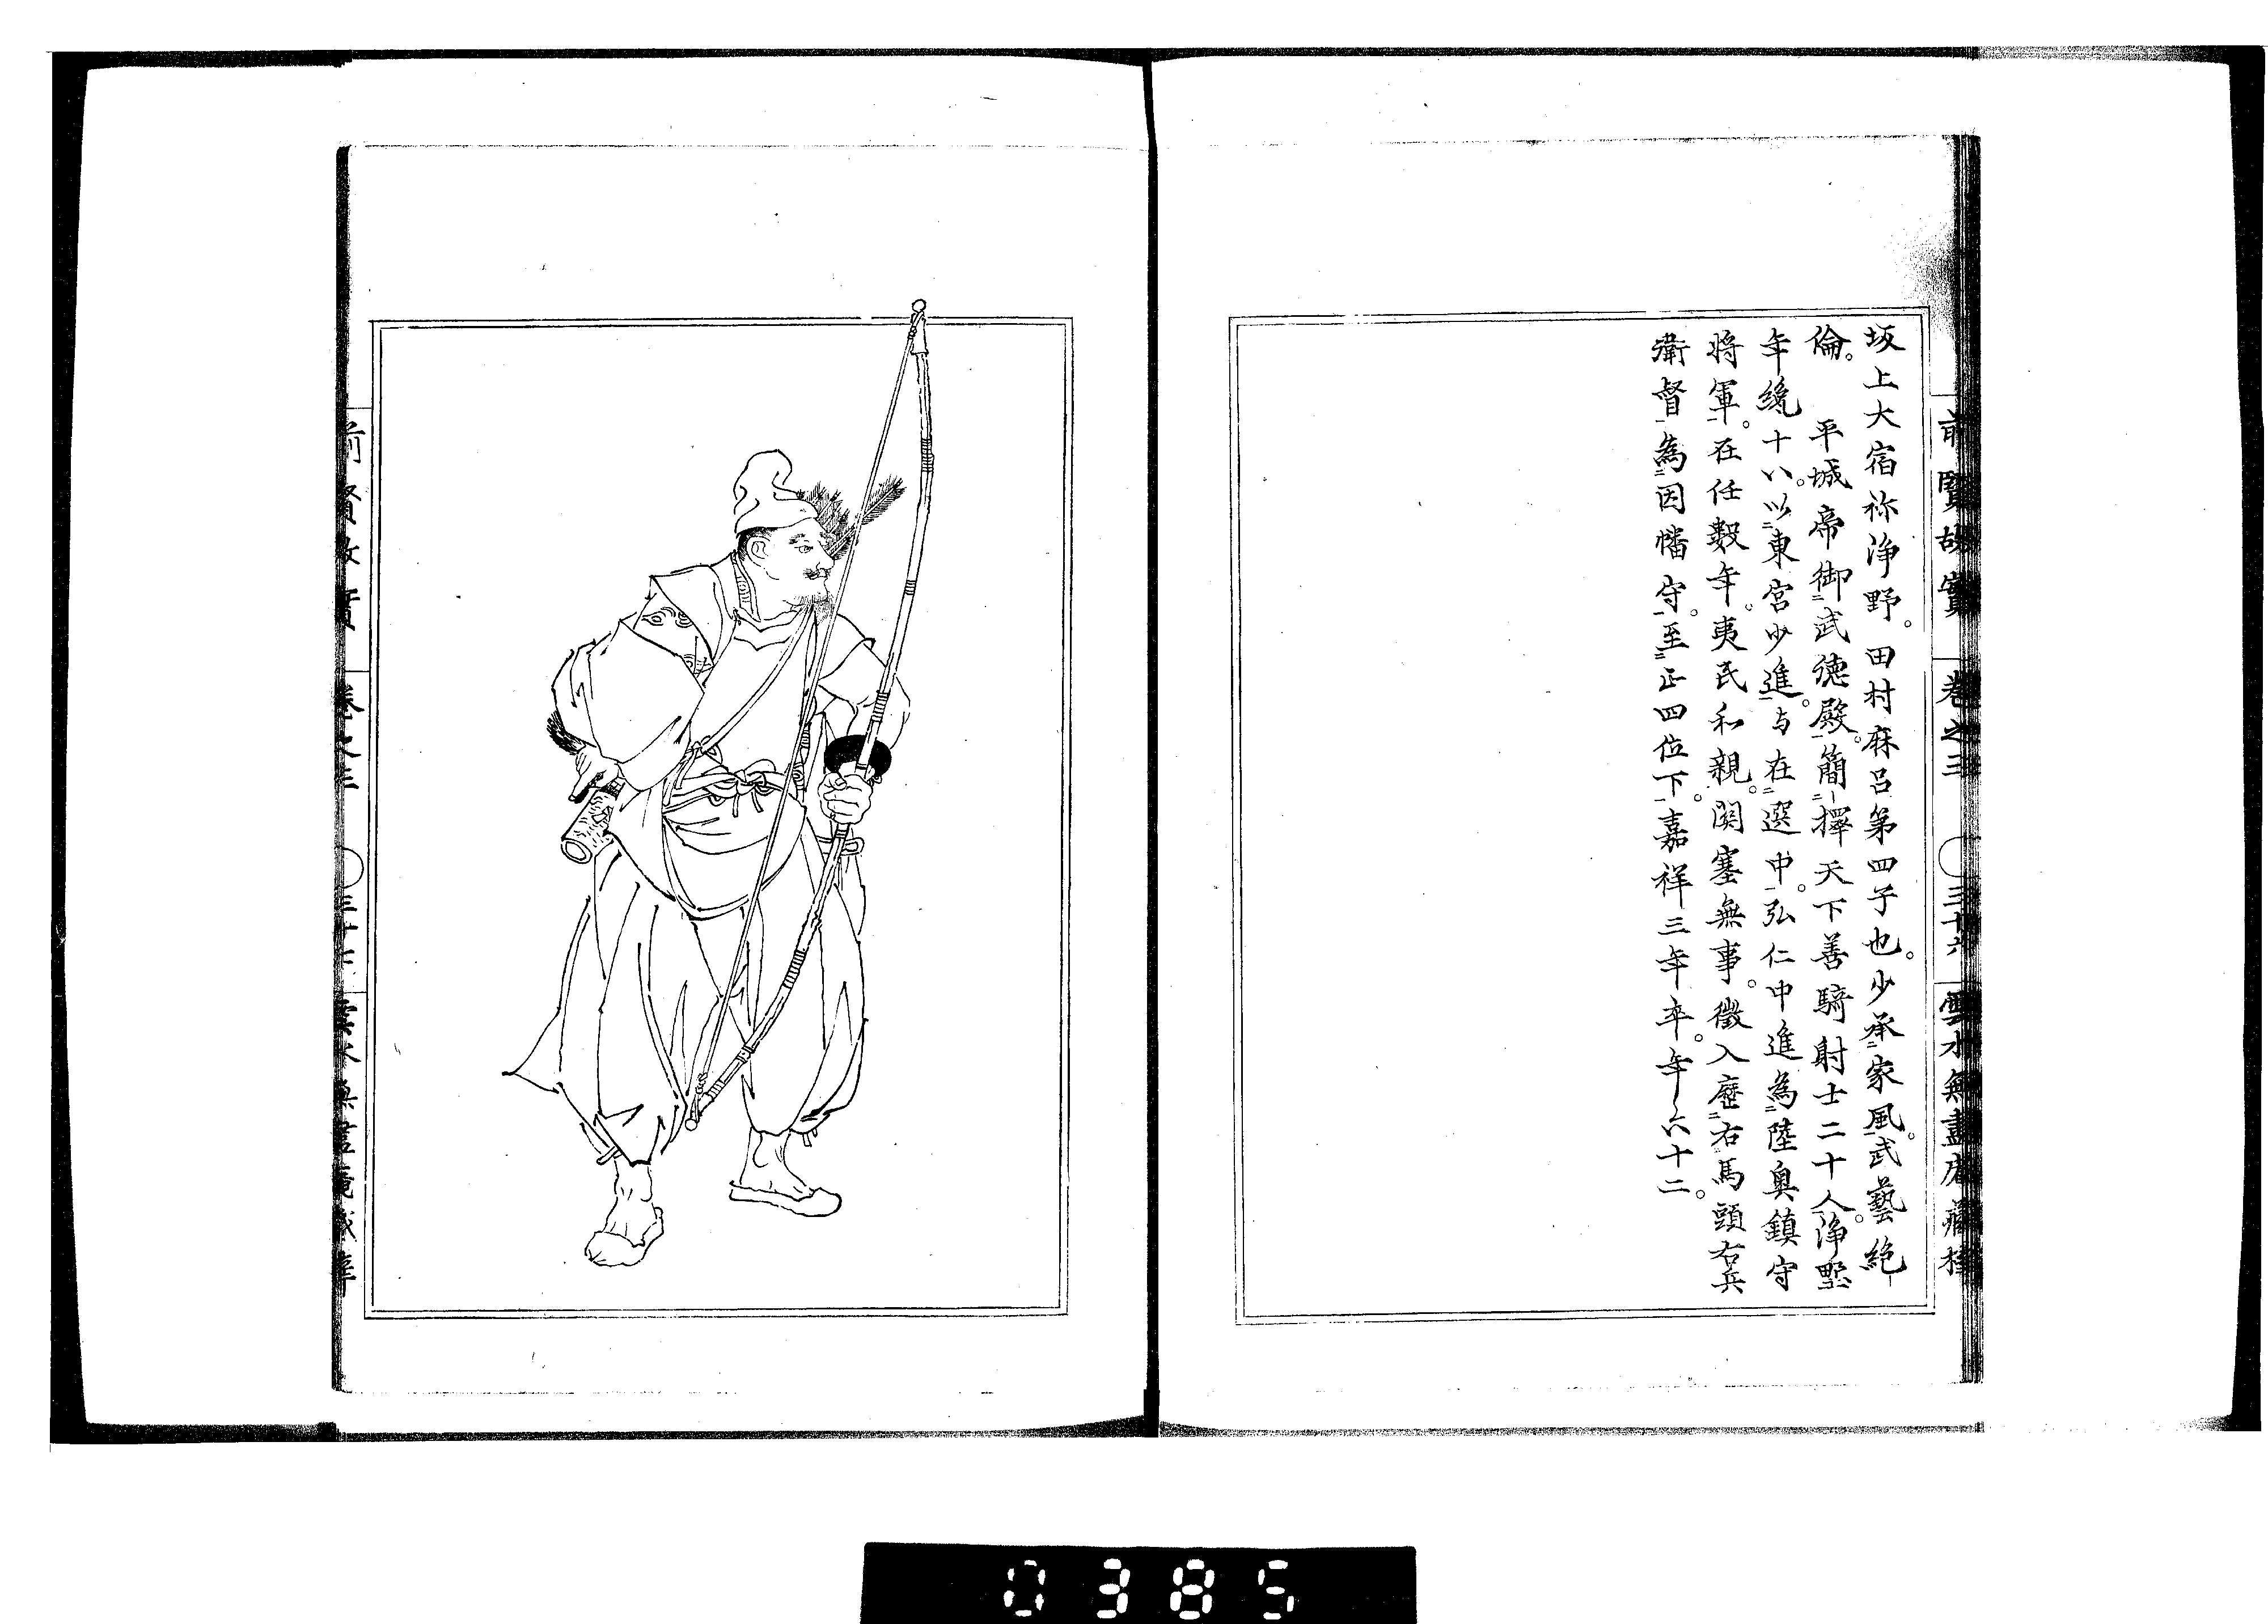 前賢故實 卷之三 三十六 雲水無盡庵藏梓
坂上大宿祢浄野。田村麻呂第四子也。少承家風。武藝絶
倫。 平城帝御武德殿。簡擇天下善騎射士二十人。浄野
年纔十八。以東宮少進。与在選中。弘仁中進為陸奥鎮守
将軍。在任数年。夷民和親。関塞無事。徴入歴右馬頭右兵
衛督為因幡守。至正四位下。嘉祥三年卒。年六十二。
前賢故實 卷之三 三十七
0385